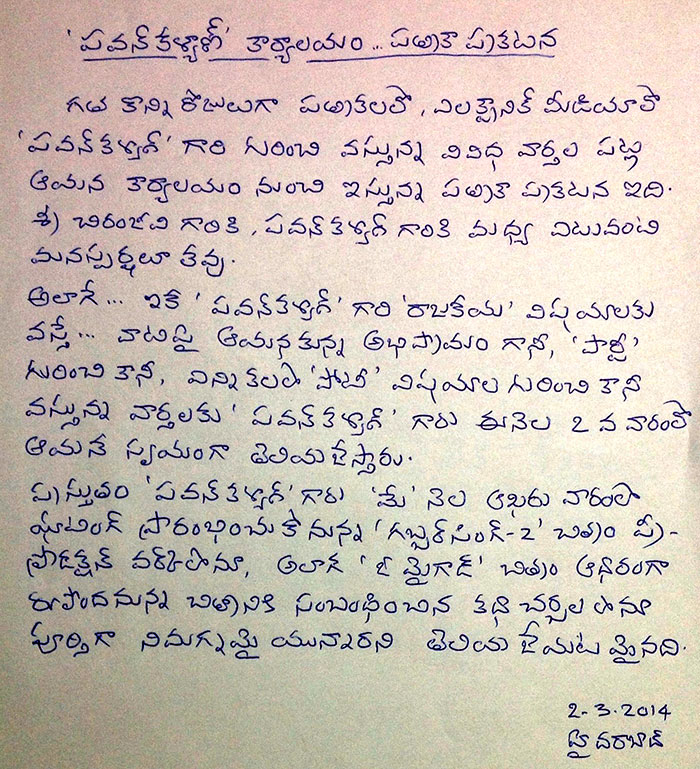 'పవన్ కళ్యాణ్' కార్యాలయం... పత్రికా ప్రకటన
గత కొన్ని రోజులుగా పత్రికలలో, ఎలక్ట్రానిక్ మీడియాలో
'పవన్ కళ్యాణ్' గారి గురించి వస్తున్న వివిధ వార్తల పట్ల
ఆయన కార్యాలయం నుంచి ఇస్తున్న పత్రికా ప్రకటన ఇది.
శ్రీ చిరంజీవి గారికి, పవన్ కళ్యాణ్ గారికి మధ్య ఎటువంటి
మనస్పర్థలూ లేవు.
అలాగే... ఇక 'పవన్ కళ్యాణ్' గారి 'రాజకీయ' విషయాలకు
వస్తే... వాటిపై ఆయనకున్న అభిప్రాయం గానీ, 'పార్టీ'
గురించి కానీ, ఎన్నికలలో 'పోటీ' విషయాల గురించి కానీ
వస్తున్న వార్తలకు 'పవన్ కళ్యాణ్' గారు ఈనెల 2 వ వారంలో
ఆయనే స్వయంగా తెలియజేస్తారు.
ప్రస్తుతం 'పవన్ కళ్యాణ్' గారు 'మే' నెల ఆఖరు వారంలో
షూటింగ్ ప్రారంభించుకోనున్న 'గబ్బర్ సింగ్-2' చిత్రం ప్రీ-
ప్రొడక్షన్ వర్క్ లోనూ, అలాగే 'ఓ మైగాడ్' చిత్రం ఆధారంగా
రూపొందనున్న చిత్రానికి సంబంధించిన కథా చర్చలలోనూ
పూర్తిగా నిమగ్నమై యున్నారని తెలియజేయటమైనది.
2-3-2014
హైదరాబాద్